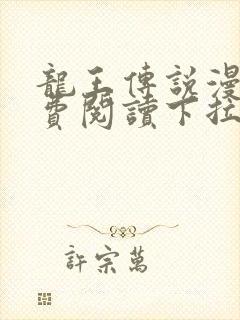 龍王傳説漫
費閱讀下拉
許宗萬